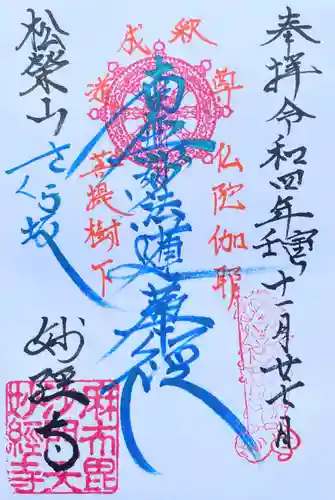 奉拝 令和四年壬寅 十一月廿七日
釈尊仏陀伽耶
南無妙法蓮華經
成道菩提樹下
松榮山
さくら坂
妙経寺
麻布毘
沙門天
妙經寺